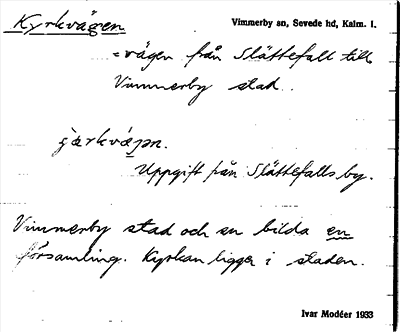 Kyrkvägen
Vimmerby sn, Sevede hd, Kalm. l.
= vägen från Slättefall till
Vimmerby stad.
Uppgift från Slättefalls by.
Vimmerby stad och sn bilda en
församling. Kyrkan ligger i staden.
Ivar Modéer 1933